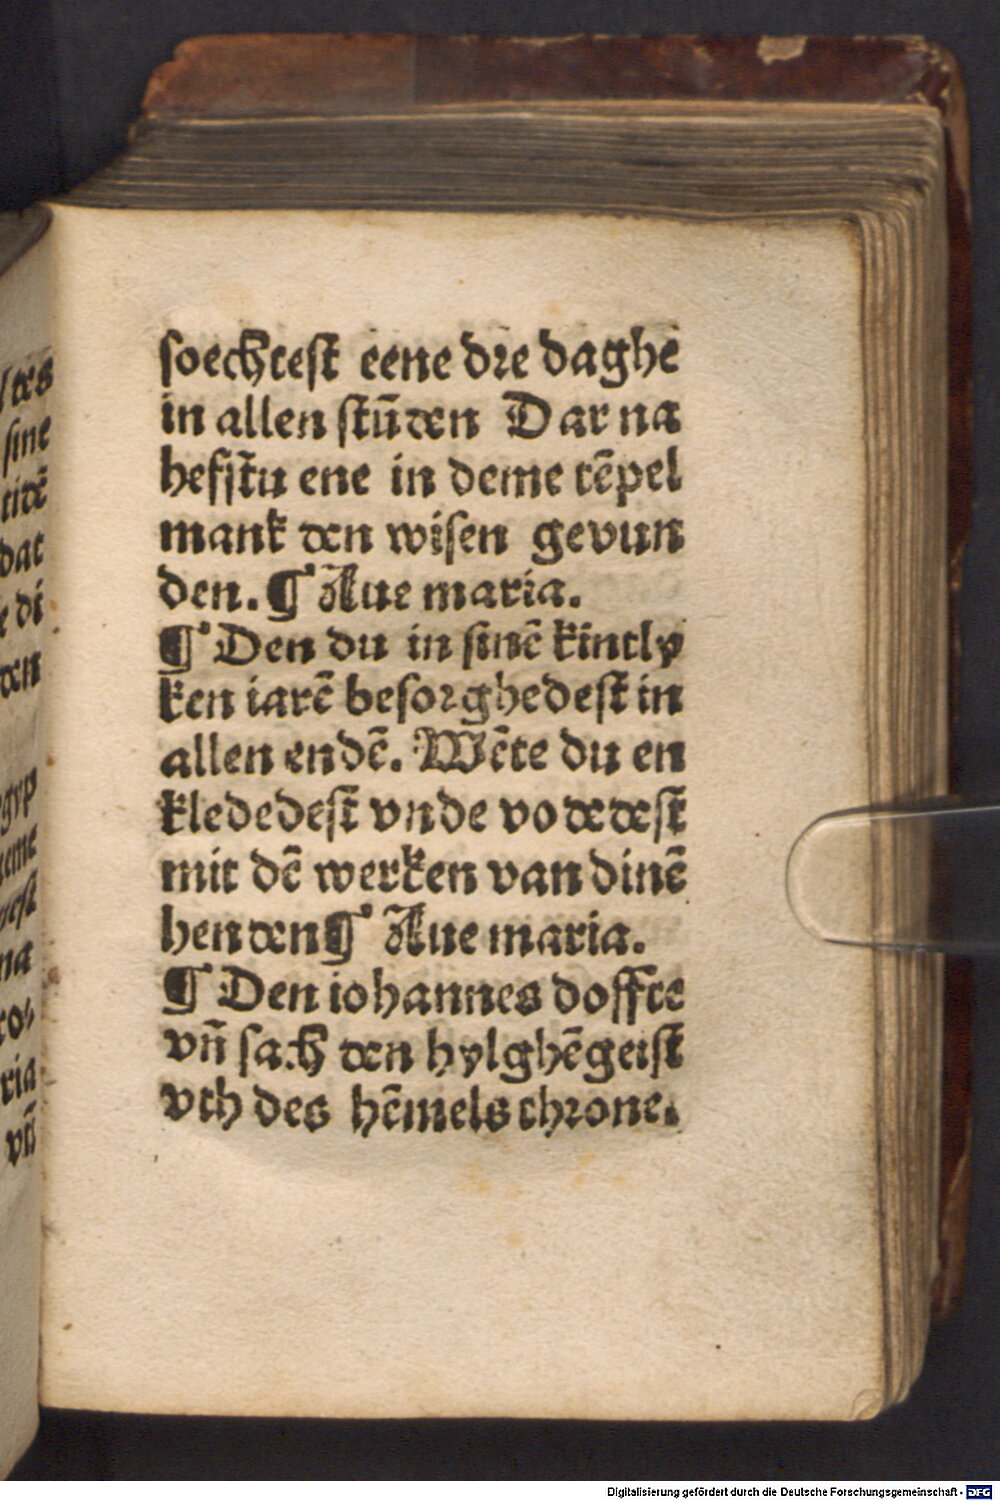 soechtest eene dre daghe
in allen stūden Dar na
hefstu ene in deme tēpel
mank den wisen gevun
den. ¶ Aue maria.
¶ Den du in sinē kintly
ken iarē besorghedest in
allen endē. Wēte du en
kledest vnde vodedest
mit dē werken van dinē
henden ¶ Aue maria.
¶ Den iohannes doffte
vn̄ sach den hylghēgeist
vth des hēmels throne.
Digitalisierung gefördert durch die Deutsche Forschungsgemeinschaft - DFG